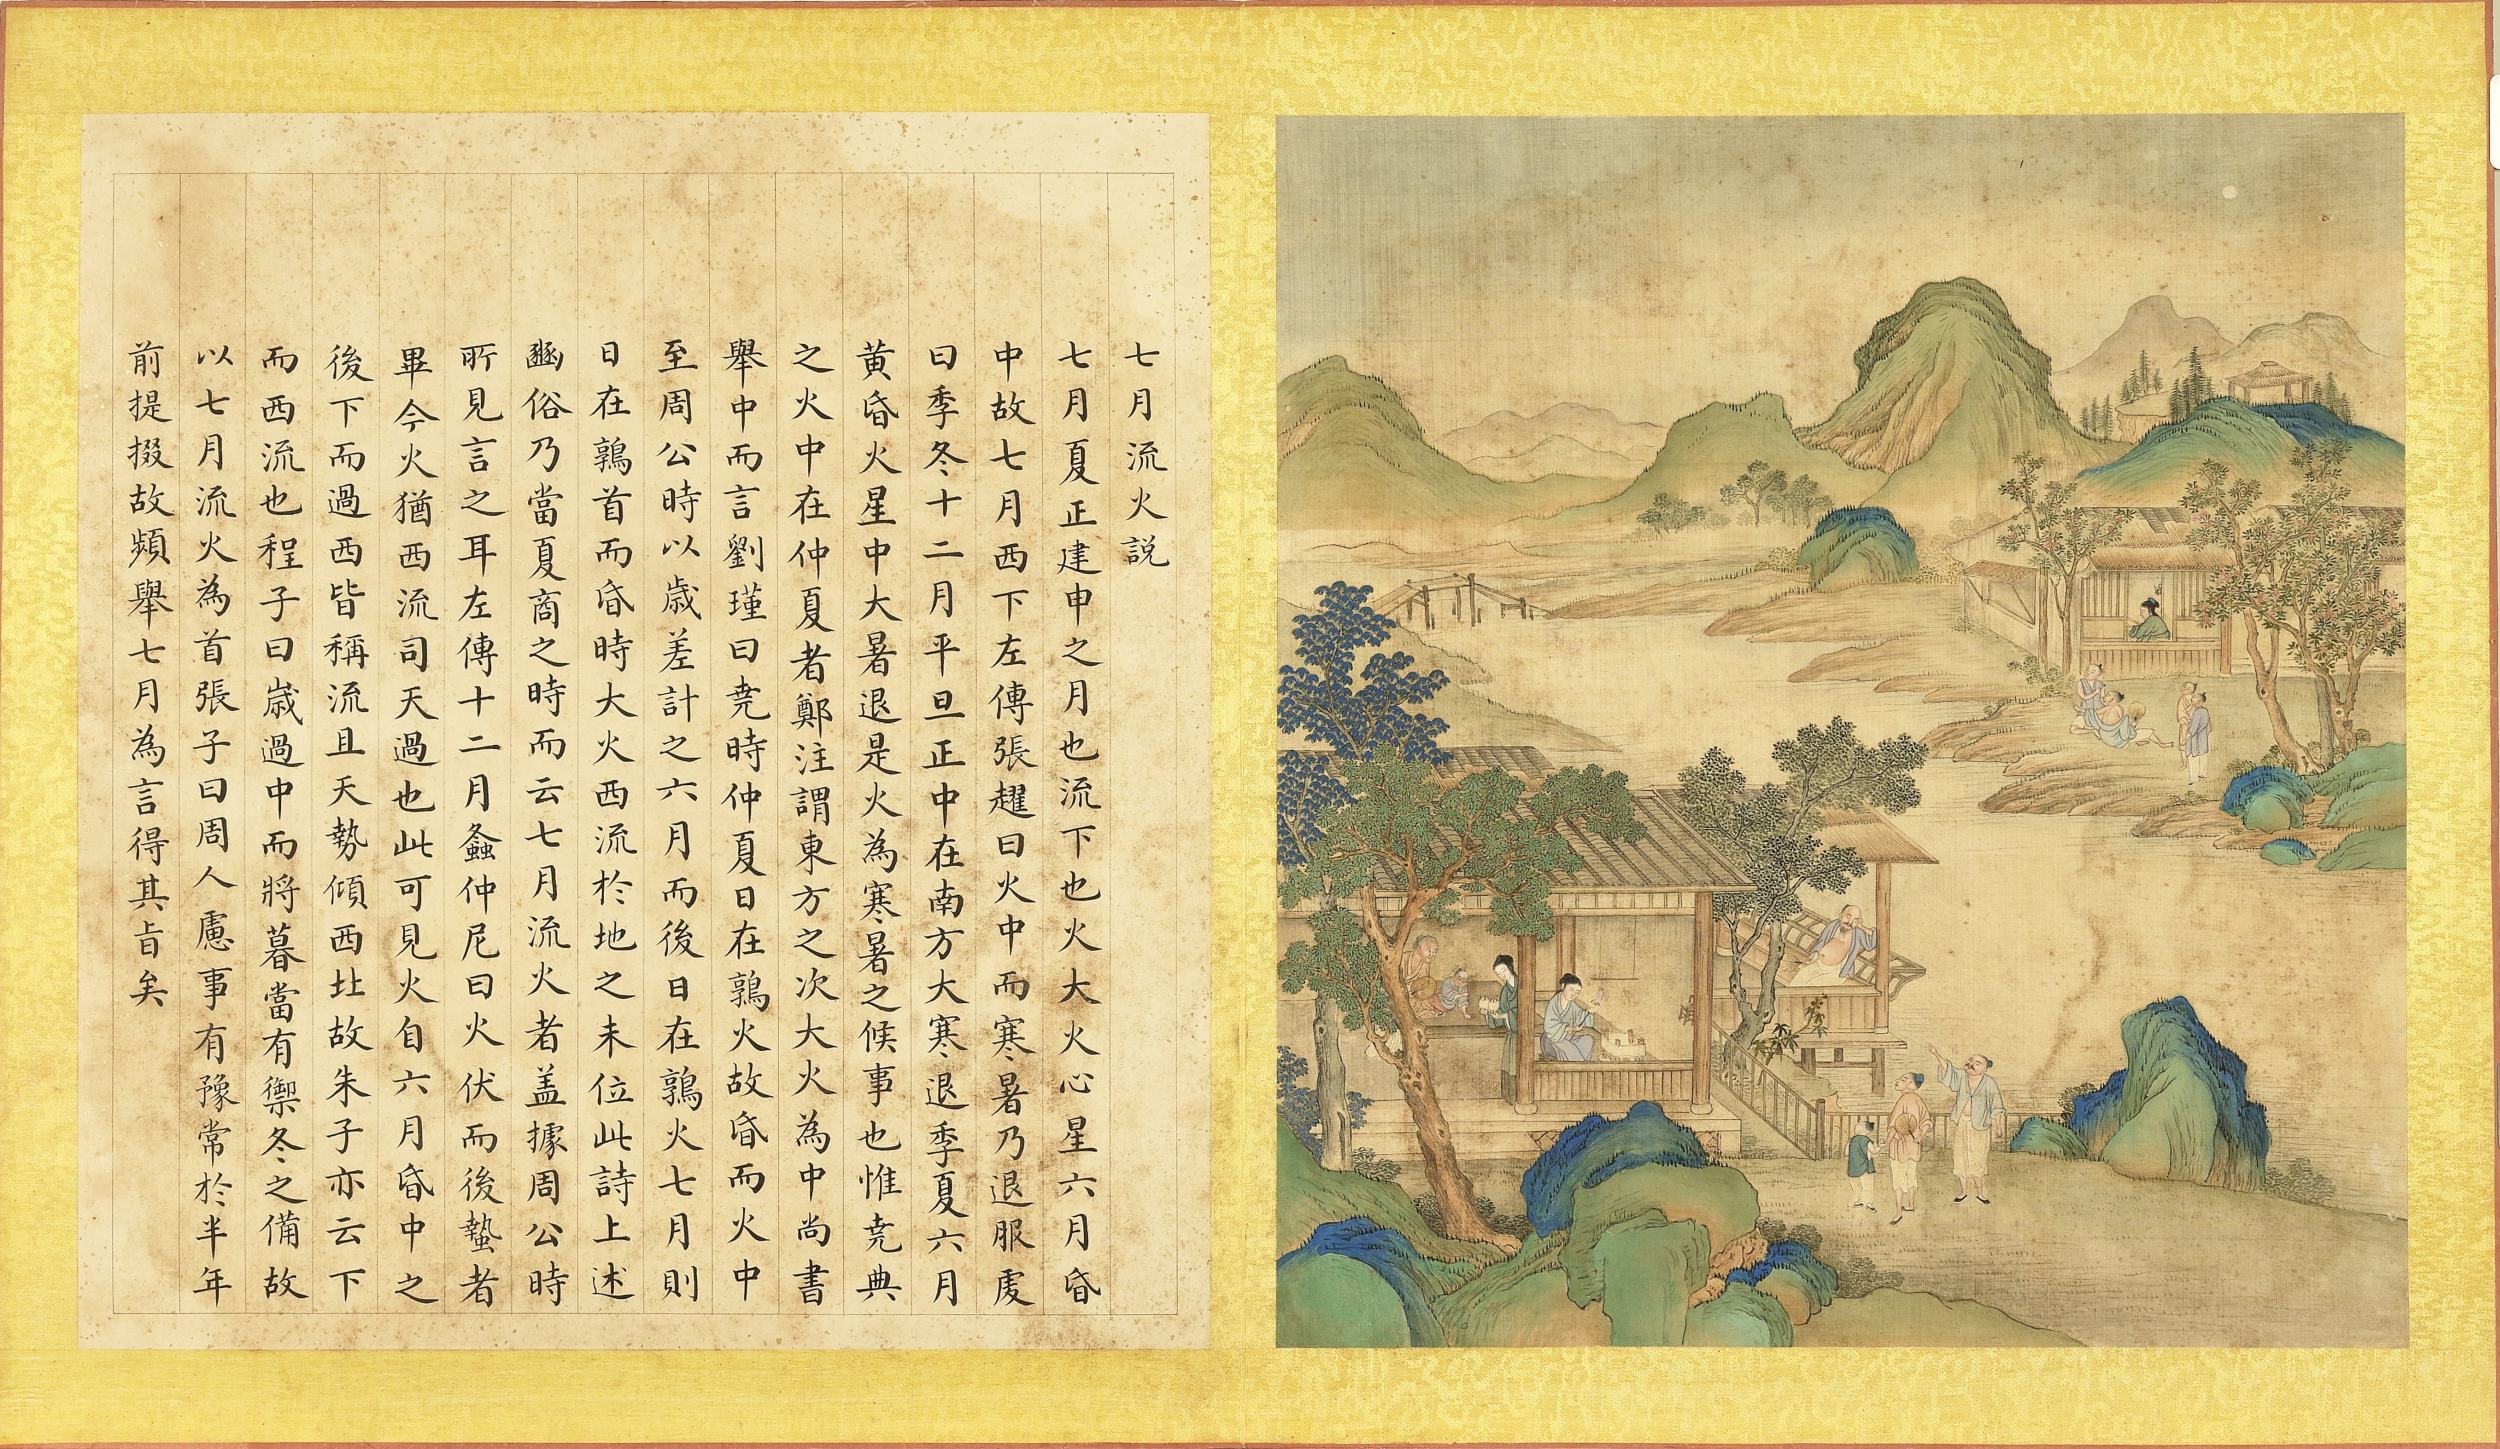 七月流火說
七月夏正建申之月也流下也火大火心星六月昏
中故七月西下左傳張趯曰火中而寒暑乃退服虔
曰季冬十二月平旦正中在南方大寒退季夏六月
黃昏火星中大暑退是火為寒暑之候事也惟堯典
之火中在仲夏者鄭注謂東方之次大火為中尚書
舉中而言劉瑾曰堯時仲夏日在鶉火故昏而火中
至周公時以歲差計之六月而後日在鶉火七月則
日在鶉首而昏時大火西流於地之未位此詩上述
豳俗乃當夏商之時而云七月流火者蓋據周公時
所見言之耳左傳十二月螽仲尼曰火伏而後蟄者
畢今火猶西流司天過也此可見火自六月昏中之
後下而過西皆稱流且天勢傾西北故朱子亦云下
而西流也程子曰歲過中而將暮當有禦冬之備故
以七月流火為首張子曰周人慮事有豫常於半年
前提掇故頻舉七月為言得其旨矣